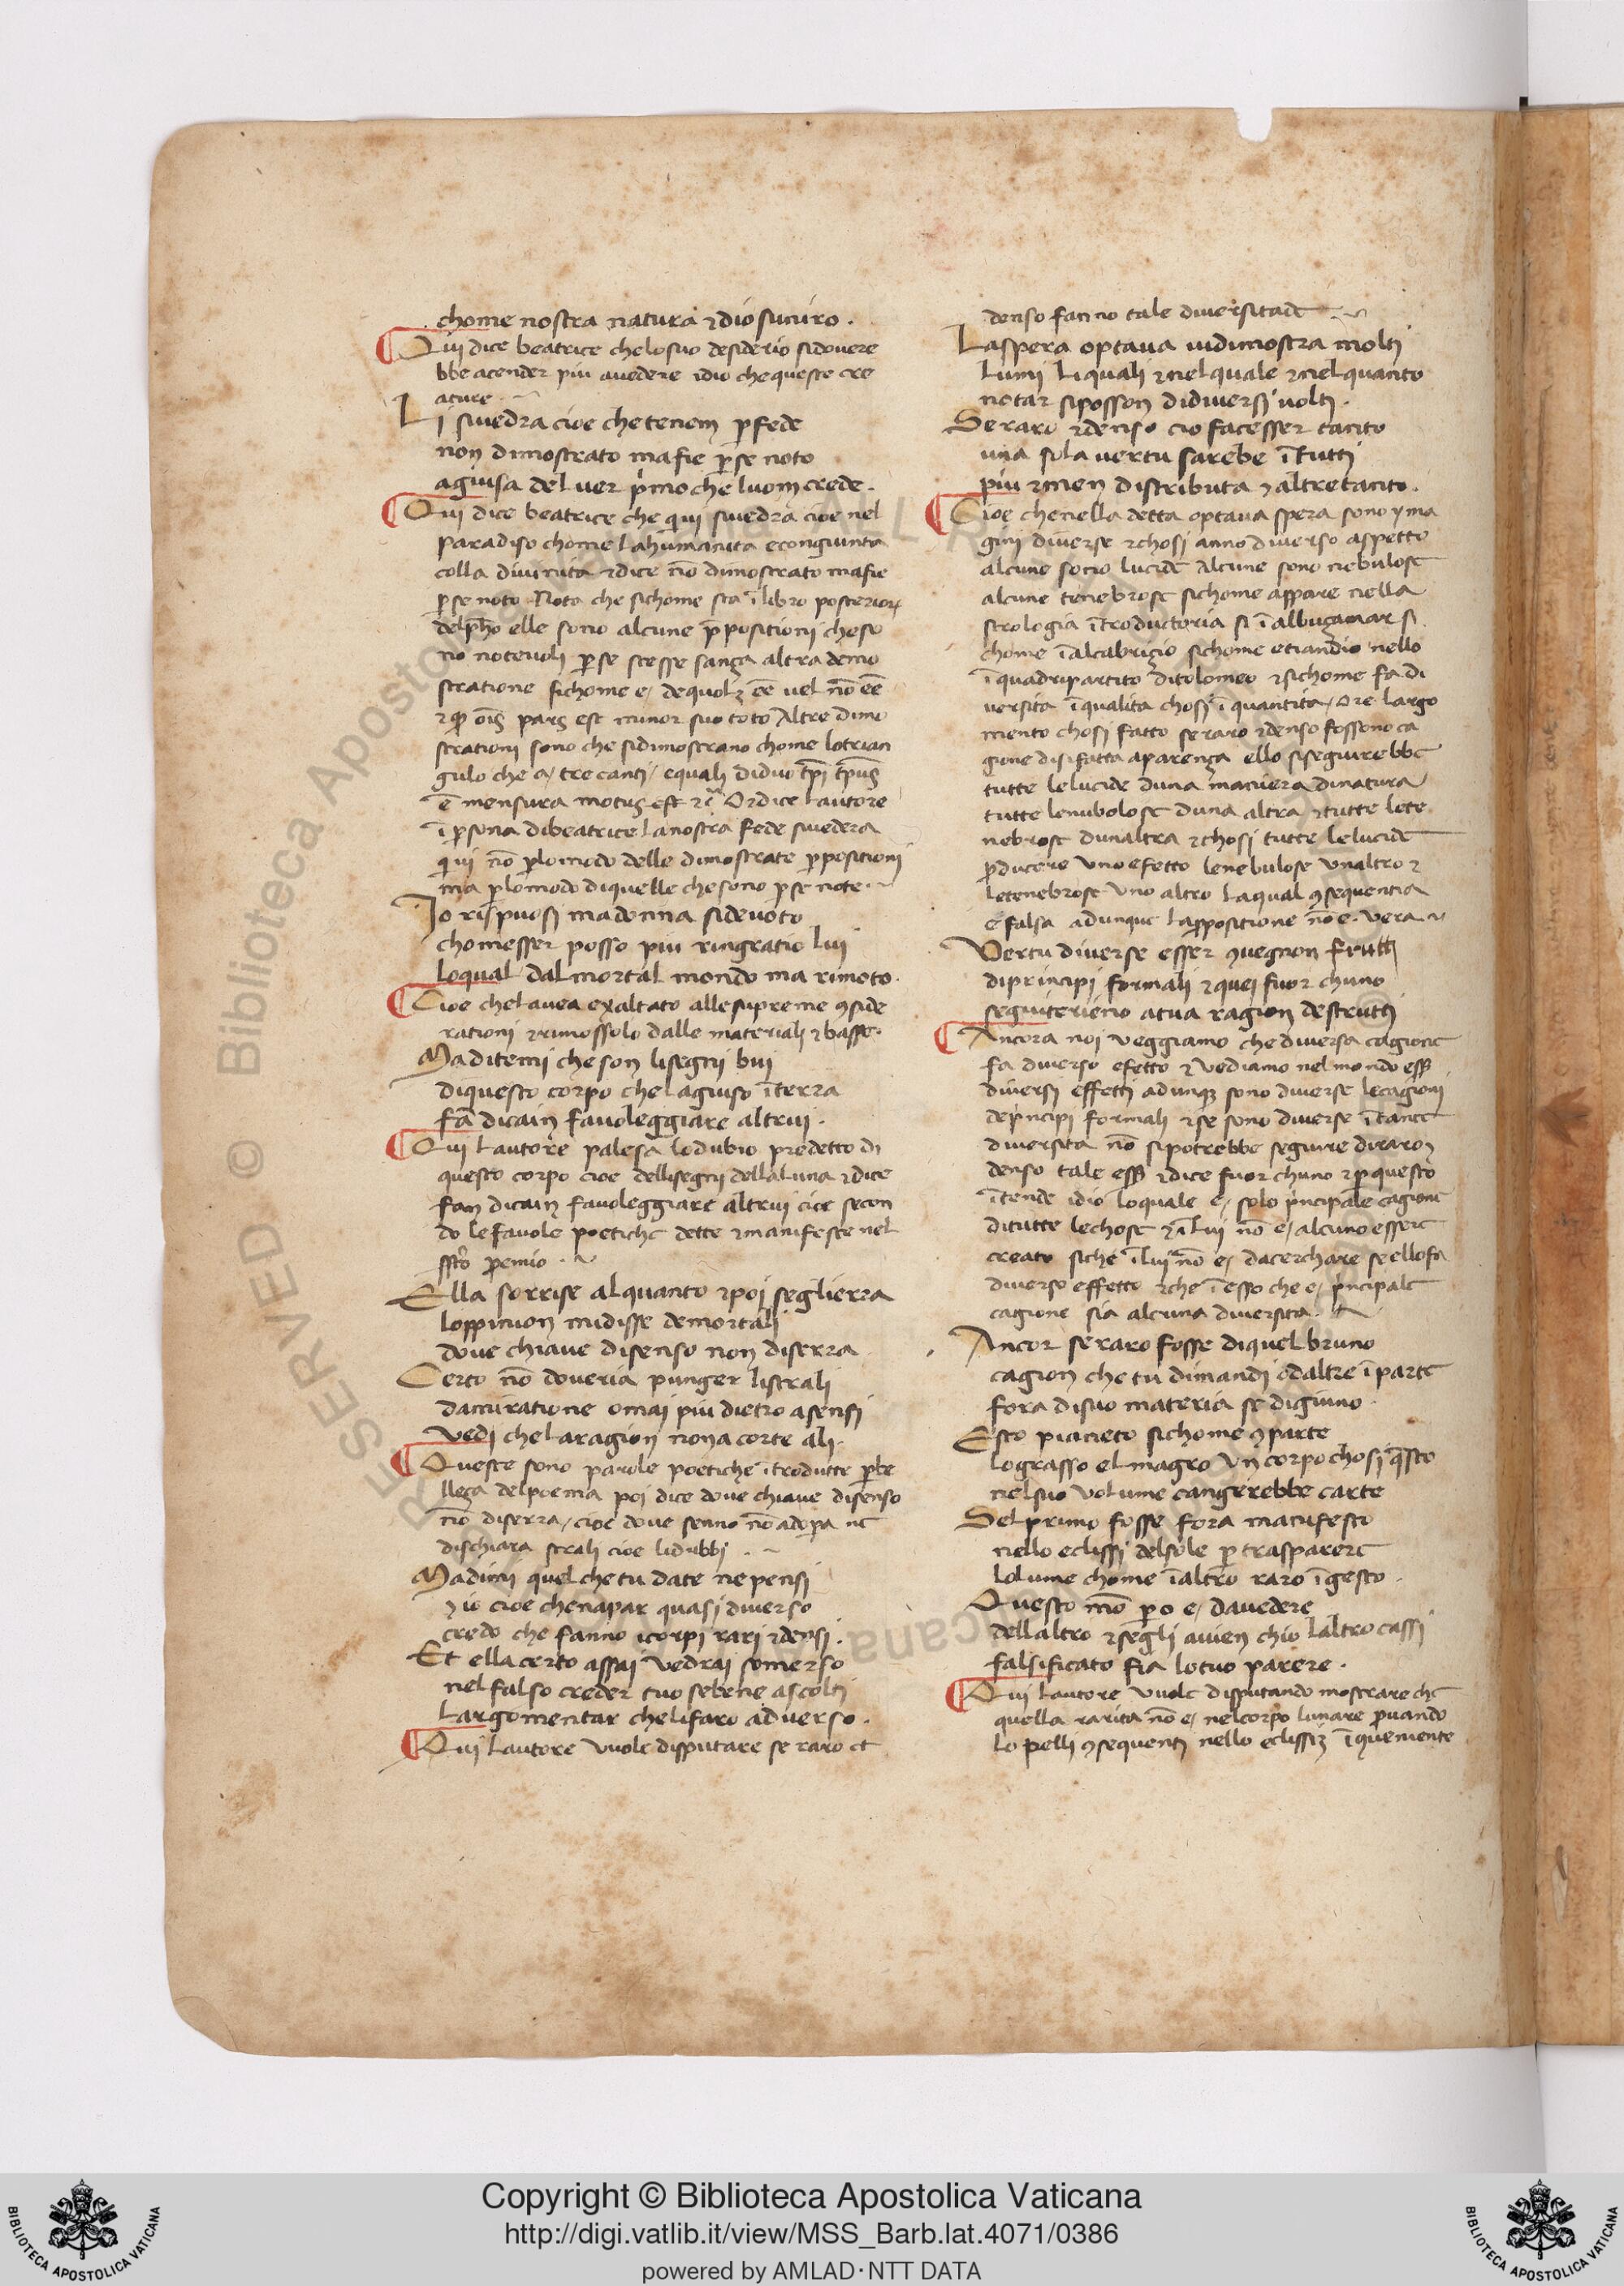 chome nostra natura ⁊ dio suniro .
Qui dice beatrice chelosuo desiderio sidovere
bbe acender piu avedere idio che queste cre
ature
Li sivedra cioe che tenem ꝑ fede
non dimostrato mafie ꝑse noto
aguisa del ver pͥmo che luom crede .
Qui dice beatrice che qui sivedra cioe nel
paradiso chome lahumanita e congiunta
colla divinita ⁊ dice nō dimostrato mafie
ꝑse noto Nota che sichome sta ī libro posterior
delpho elle sono alcune ꝓpositioni cheso
no notevoli ꝑse stesse sanza altra demo
stratione sichome e / de quolz eē vel nō eē
⁊ omīs pars est minor suo toto Altre dimo
strationi sono che sidimostrano chome lotrian
gulo che a / tre canti / equali diduo
ē mensura motus est ⁊cͣ Or dice lautore
ī ꝑsona dibeatrice lanostra fede sivedera
qui nō ꝑ lomodo delle dimostrate ꝓpositioni
ma ꝑ lomodo di quelle che sono ꝑse note
Io rispuosi madonna si devoto
chomesser posso piu ringratio lui
loqual dal mortal mondo ma rimoto .
Cioe chelavea exaltato alle supreme ꝯside
rationi ⁊ rimossolo dalle materiali ⁊ basse .
Ma ditemi che son lisegni bui
di questo corpo che laguiso ī terra
fā dicain favoleggiare altrui .
Qui lautore palesa lo dubio predetto di
questo corpo cioe dellisegni della luna ⁊ dice
fan dicain favoleggiare altrui cioe secon
do lefavole poetiche dette ⁊ manifeste nel
ꝓemio .
Ella sorrise alquanto ⁊ poi seglierra
loppinion midisse demortali
dove chiave disenso non diserra
Certo nō doveria punger listrali
damiratione omai piu dietro asensi
vedi chelaragion nona corte ali .
Queste sono parole poetiche ītrodutte ꝑ be
lleza delpoema poi dice dove chiave disenso
nō diserra / cioe dove senno nō adoꝑa ne
dischiara strali cioe lidubbi .
Ma dimi quel che tu date ne pensi
⁊ io cioe chenapar quasi diverso
credo che fanno icorpi rari ⁊ densi .
Et ella certo assai vedrai somerso
nel falso creder tuo sebene ascolti
largomentar chelifaro adverso .
Qui lautore vuole disputare se raro et
denso fanno tale diversitade
Laspera optava vidimostra molti
lumi li quali ⁊ nel quale ⁊ nel quanto
notar siposson didiversi volti .
Se raro ⁊ denso cio facesser tanto
una sola vertu sarebe ī tutti
piu ⁊ men distributa ⁊ altretanto .
Cioe chenella detta optava spera sono yma
gini diverse ⁊ chosi anno diverso aspetto
alcune sono lucide Alcune sono nebulose
alcune tenebrose sichome appare nella
strologia ītroductoria si ī albuzamar si
chome ī alcabrizio sichome etiandio nello
ī quadripartito ditolomeo ⁊ sichome fa di
versita ī qualita chosi ī quantita / Ore largo
mento chosi fatto se raro ⁊ denso fossono ca
gione disifatta aparenza ello siseguirebbe
tutte lelucide duna maniera dinatura
tutte lenubolose duna altra ⁊ tutte lete
nebrose dunaltra ⁊ chosi tutte lelucide
ꝓducere uno efetto lenebulose unaltro ⁊
letenebrose uno altro laqual ꝯsequentia
e falsa adunque lappositione nō e . vera
Vertu diverse esser ꝯvegnon frutti
diprincipi formali ⁊ quei fuor chuno
seguiterieno atua ragion destrutti
Ancora noi veggiamo che diversa cagione
fa diverso efetto ⁊ vediamo nel mondo
diversi effetti adunqz sono diverse lecagioni
deprncipi formali ⁊ se sono diverse ī tante
diversita nō sipotrebbe seguire diraro
denso tale ⁊ dice fuor chuno ⁊ ꝑ questo
ītende idio loquale e / solo prncipale cagione
ditutte lechose ⁊ ī lui nō e / alcuno essere
creato siche ī lui nō e / dacerchare se ello fa
diverso effetto ⁊ che ī esso che e / prncipale
cagione sia alcuna diversita .
Ancor se raro fosse diquel bruno
cagion che tu dimandi odaltre ī parte
fora disuo materia se digiuno .
Esto pianeto sichome ꝯparte
lograsso elmagro un corpo chosi qsto
nelsuo volume cangerebbe carte
Sel primo fosse fora manifesto
nello eclissi delsole ꝑ trasparere
lolume chome ī altro raro īgesto .
Questo nō ꝑo e / davedere
dellaltro ⁊ segli avien chio laltro cassi
falsificato fia lotuo parere .
Qui lautore vuole disputando mostrare che
quella rarita nō e / nelcorpo lunare ꝓvando
lo pelli ꝯsequenti nello eclissiz ī queniente